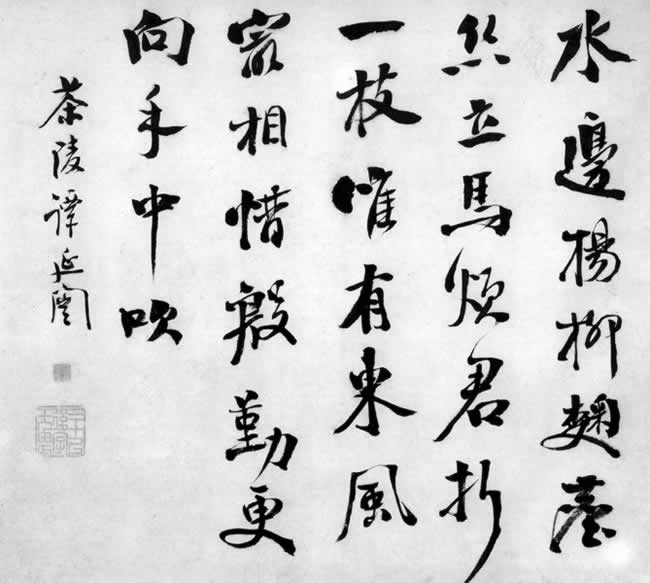 水邊楊柳麴塵
絲立馬煩君折
一枝唯有東風
最相惜殷勤更
向手中吹
茶陵譚延闓